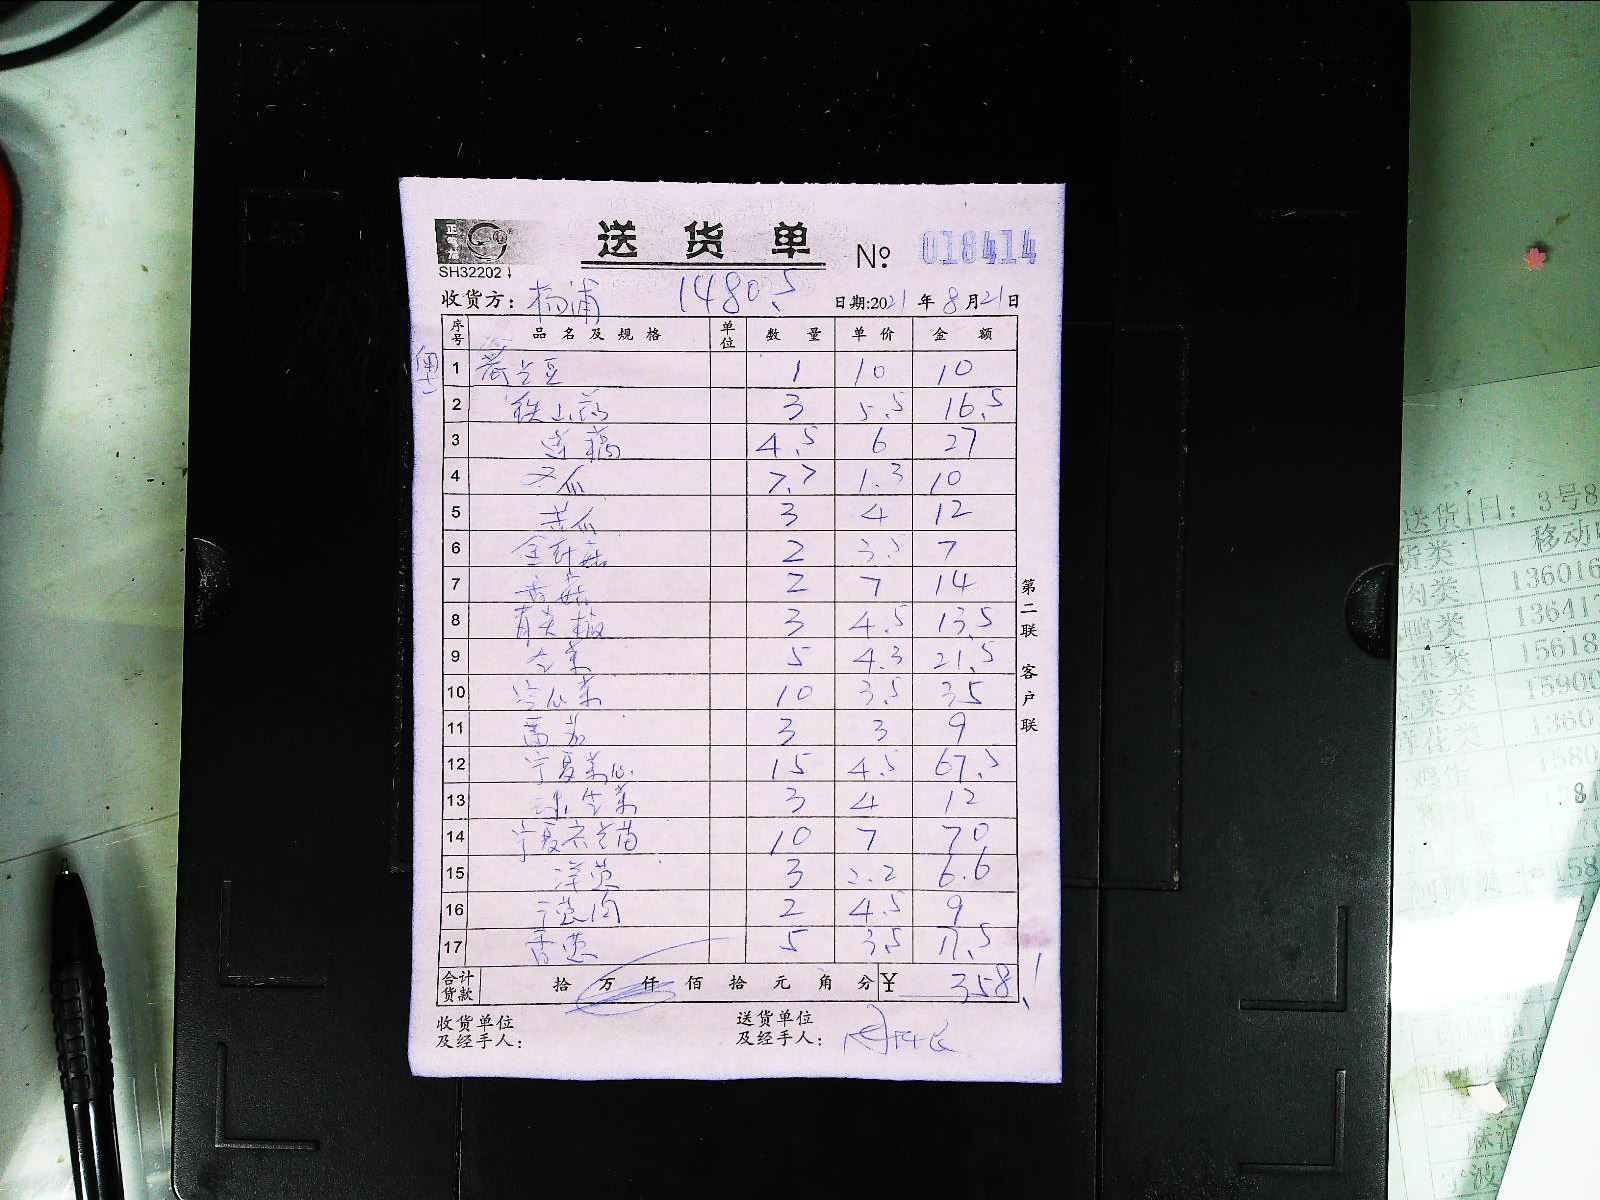 正
送 货 单
№ 018414
SH32202
收货方：杨浦 1480.5 日期:2021年8月21日
序号 品名及规格 单位 数量 单价 金额
1 荷兰豆 1 10 10
2 铁山药 3 5.5 16.5
3 莲藕 4.5 6 27
4 冬瓜 7.7 1.3 10
5 苦瓜 3 4 12
6 金针菇 2 3.5 7
7 香菇 2 7 14
8 青尖椒 3 4.5 13.5
9 4.3 5 21.5
10 空心菜 10 3.5 35
11 番茄 3 3 9
12 宁夏菜心 15 4.5 67.5
13 球生菜 3 4 12
14 宁夏芥兰苗 10 7 70
15 洋葱 3 2.2 6.6
16 2 4.5 9
17 香葱 5 3.5 17.5
合计货款 拾 万 仟 佰 拾 元 角 分 ¥ 358.1
收货单位及经手人：
送货单位及经手人：
第二联 客户联
送货 日：3号8
货类 移动
肉类 136016
鸭类 13641
果类 15618
菜类 15900
1360
1580